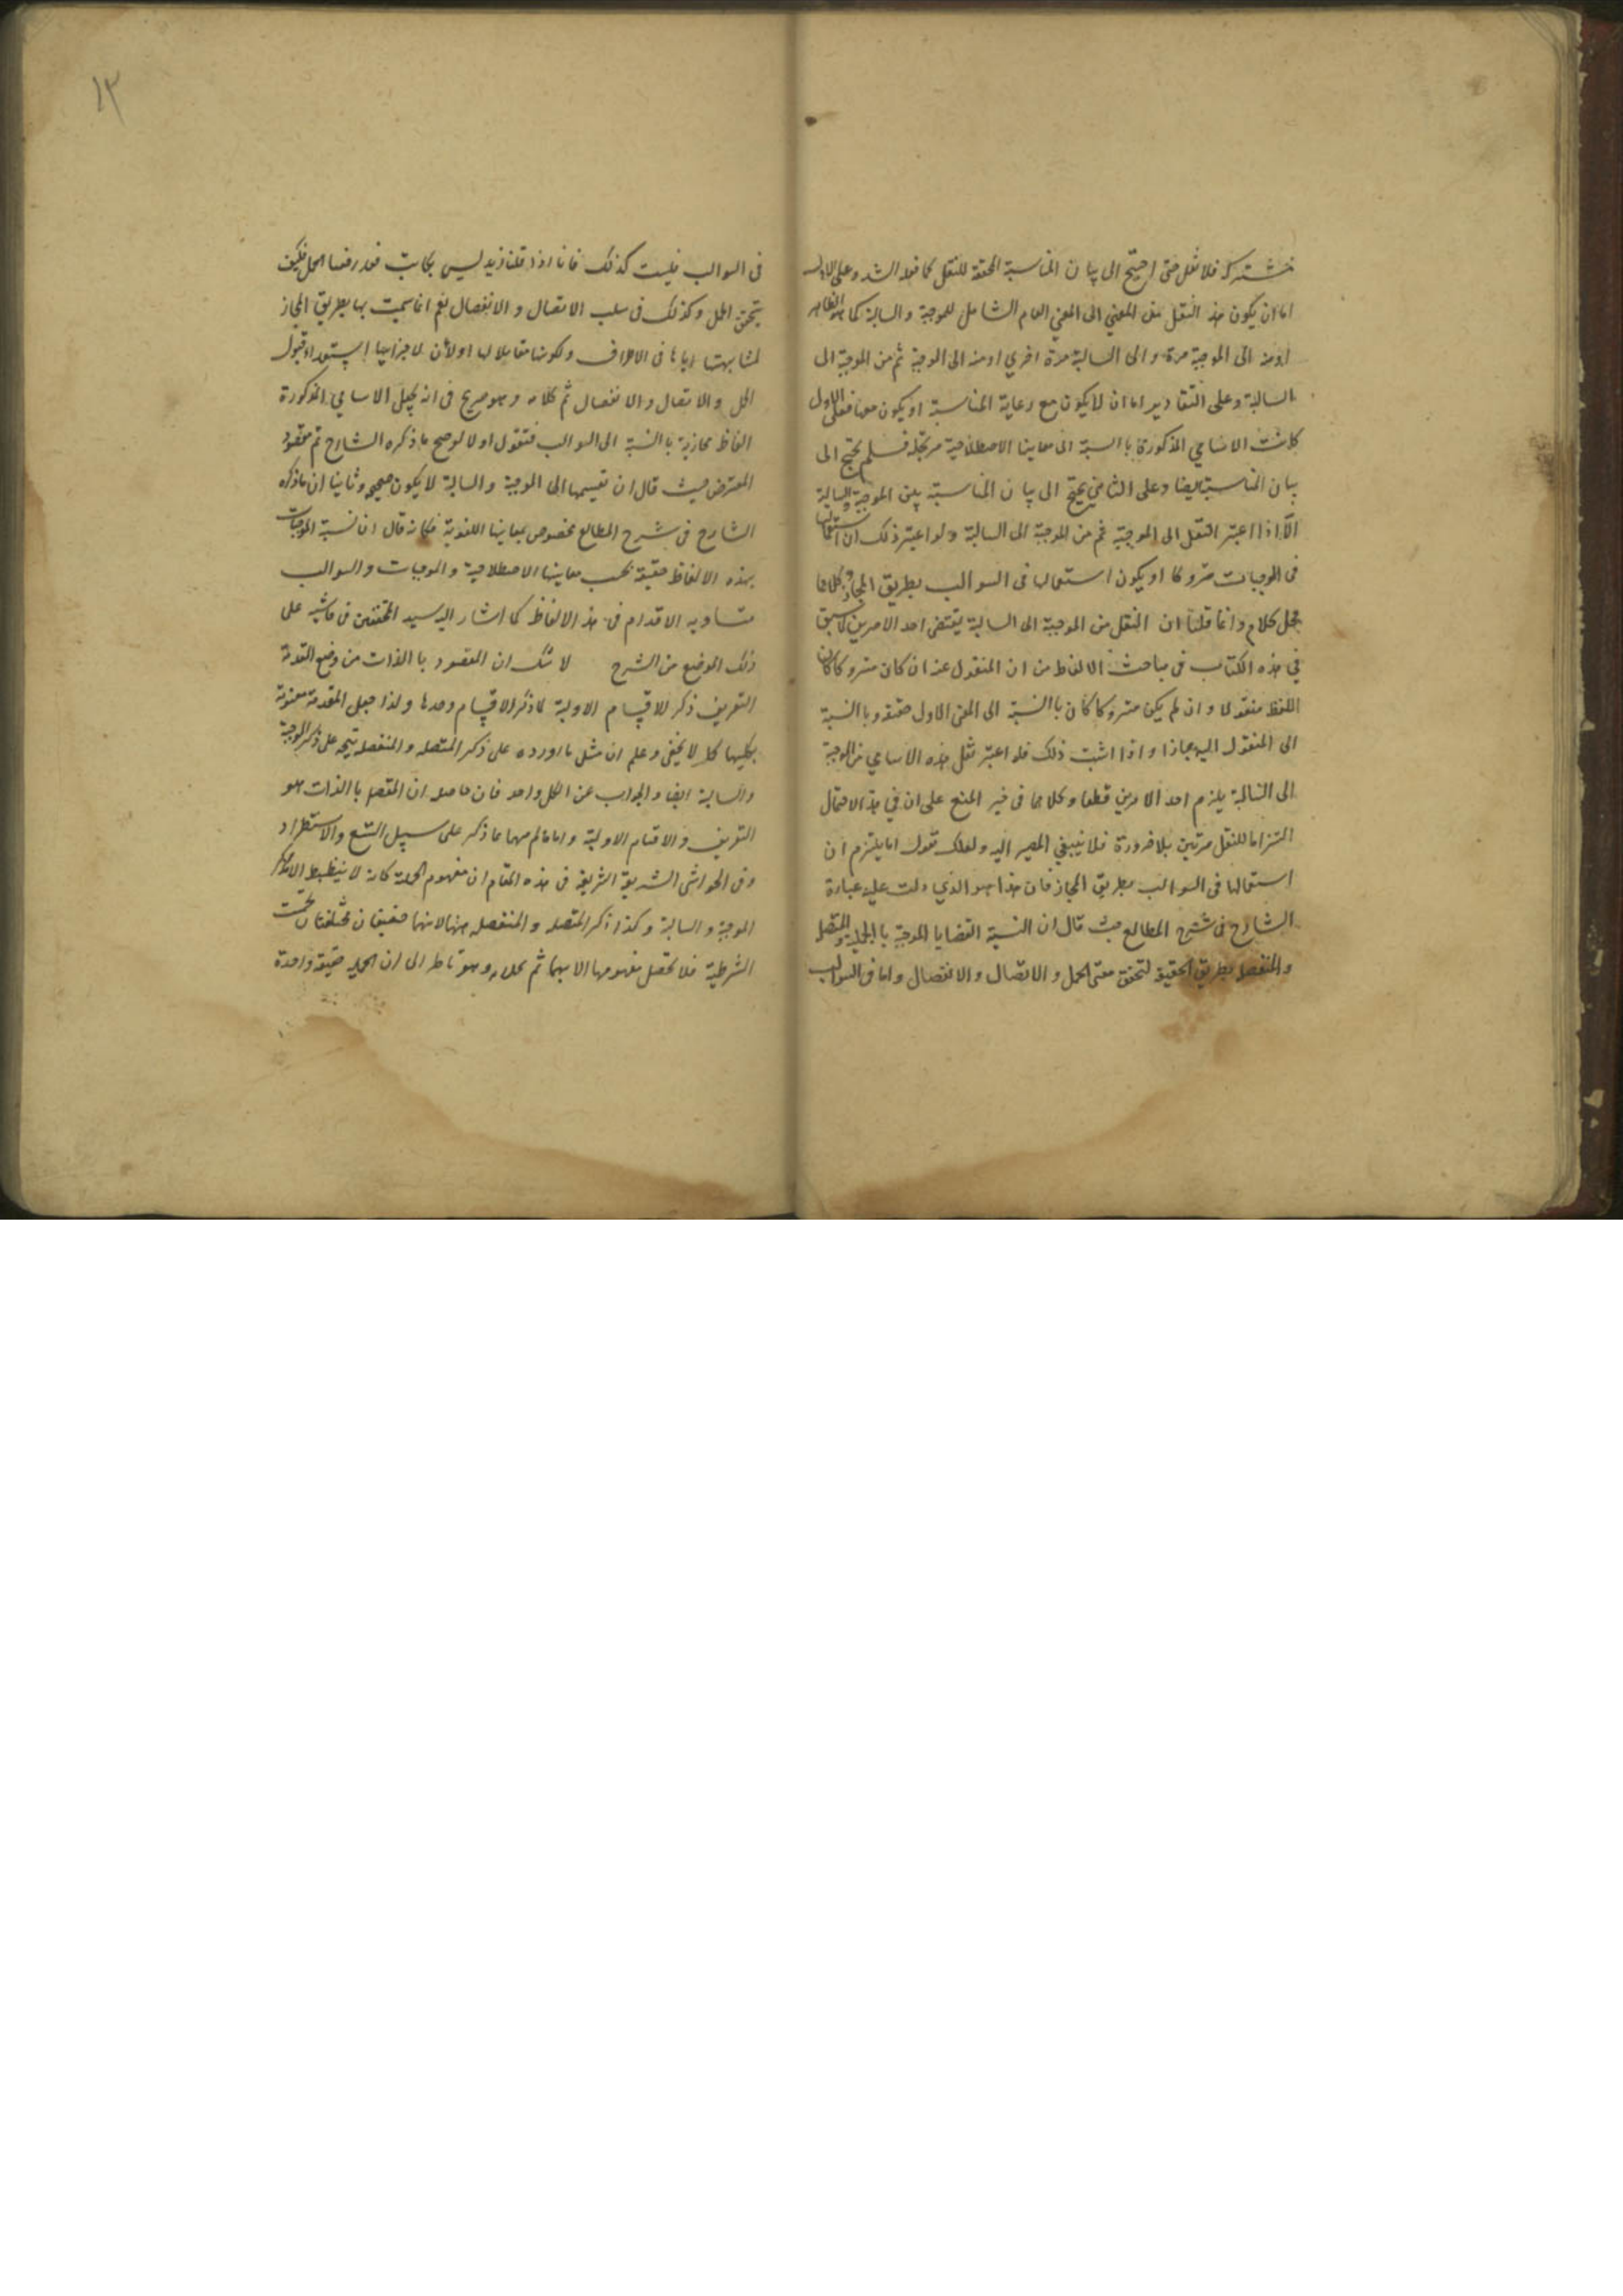 مشتركة فلا نقل حتى احتيج الى بيان المناسبة المحققة للنقل كما فعله الشـ وعلى الاول
اما ان يكون هذ النقل من المعنى الى المعنى العام الشامل للموجبة والسالبة كما هو الظاهر
او منه الى الموجبة مرة والى السالبة مرة اخرى او منه الى الموجبة ثم من الموجبة الى
السالبة وعلى التقادير اما ان لا يكون مع رعاية المناسبة او يكون معها فعلى الاول
كانت الاسامي المذكورة بالنسبة الى معاينها الاصطلاحية مرتجلة فلم يحتج الى
بيان المناسبة ايضا وعلى الثاني يحتج الى بيان المناسبة بين الموجبة والسالبة
الا اذا اعتبر النقل الى الموجبة ثم من الموجبة الى السالبة ولو اعتبر ذلك ان استعمالها
فى الموجبات متروكا او يكون استعمالها فى السوالب بطريق المجاز وكلاهما
محل كلام وانما قلنا ان النقل من الموجبة الى السالبة يقتضى احد الامرين لما سبق
في هذه الكتاب فى مباحث الالفاظ من ان المنقول عنه ان كان متروكا كان
اللفظ منقولا وان لم يكن متروكا كان بالنسبة الى المعنى الاول حقيقة وبالنسبة
الى المنقول اليه مجازا واذا اثبت ذلك فلو اعتبر نقل هذه الاسامي من الموجبة
الى السالبة يلزم احد الامرين قطعا وكلاهما فى خير المنع على ان في هذ الاحتمال
التزاما للنقل مرتين بلا ضرورة فلا ينبغي المصير اليه ولعلك تقول انا يلتزم ان
استعمالها فى السوالب بطريق المجاز فان هذا هو الذي دلت عليه عبارة
الشارح فى شرح المطالع حيث قال ان النسبة القضايا الموجبة بالحملية والمتصلة
والمنفصلة بطريق الحقيقة لتحقق معنى الحمل والاتصال والانفصال واما فى السوالب
١٣
فى السوالب فليست كذلك فانا اذا قلنا زيد ليس بكاتب فقد رفعنا الحمل فكيف
يتحقق الحمل وكذلك فى سلب الاتصال والانفصال نعم انما سميت بها بطريق المجاز
لمشابهتها اياها فى الاطراف ولكونها مقابلا لها او لأن لاجزائها استعداد قبول
الحمل والاتصال والانفصال ثم كلامه وهو صريح فى انه يجعل الاسامي المذكورة
الفاظ مجازية بالنسبة الى السوالب فنقول اولا لو صح ما ذكره الشارح تم مقصود
المعترض حيث قال ان تقسيمها الى الموجبة والسالبة لا يكون صحيحه وثانيا ان ما ذكره
الشارح فى شرح المطالع مخصوص بمعاينها اللغوية فكانه قال ان نسبة الموجبات
بهذه الالفاظ حقيقة بحسب معاينها الاصطلاحية والموجبات والسوالب
متساويه الاقدام فى هذ الالفاظ كما اشار اليه سيد المحققين فى حاشيه على
ذلك الموضع من الشرح لا شك ان المقصود بالذات من وضع المقدمة
التعريف ذكر للاقسام الاولية لا ذكر الاقسام وحدها ولذا جعل المقدمة معنونة
بكليهما كما لا يخفى وعلم ان مثل ما اورده على ذكر المتصله والمنفصله يتجه على ذكر الموجبة
والسالبة ايضا والجواب عن الكل واحد فان حاصله ان المقصد بالذات هو
التعريف والاقسام الاولية واما ما لم منهما مما ذكر على سبيل التبع والاستطراد
وفى الحواشى الشريفة الشريفة فى هذه المقام ان مفهوم الحملية كانه لا ينظبط الا بذكر
الموجبة والسالبة وكذا ذكر المتصله والمنفصله ههنا لانهما حقيقتان مختلفتان تحت
الشرطية فلا يحصل مفهومها الا بهما ثم كلامه وهو ناظر الى ان الحملية حقيقة واحدة